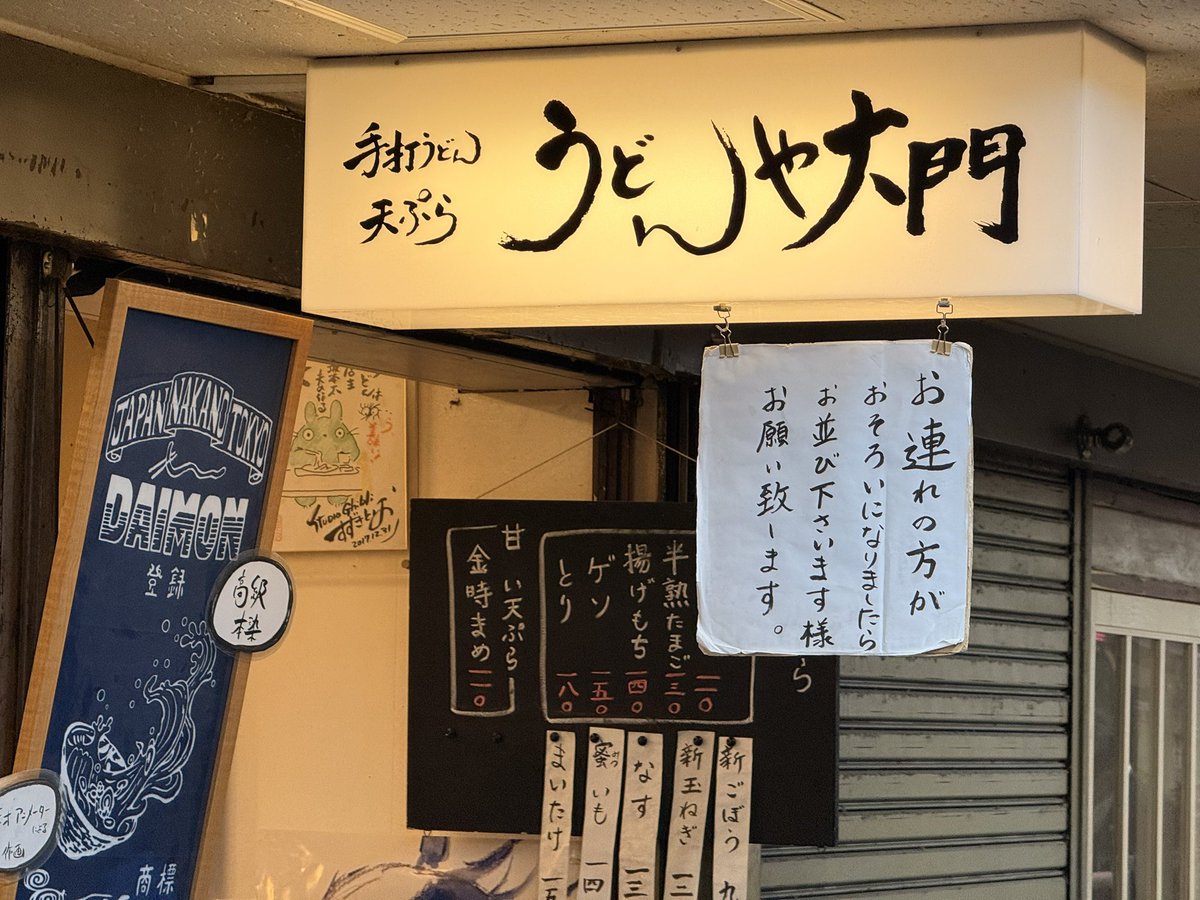 手打うどん
天ぷら
うどんや大門
お連れの方が
おそろいになりましたら
お並び下さいます様
お願い致します。
JAPAN NAKANO TOKYO
DAIMON
登録
高級
商標
作画
STUDIO Ghibli
2017.12.31
ら
一一〇
半熟たまご 一三〇
揚げもち 一四〇
ゲソ 一五〇
とり 一八〇
甘い天ぷら
金時まめ 一一〇
新ごぼう 九
新玉ねぎ 一二
なす 一三
蜜いも 一四
まいたけ 一五